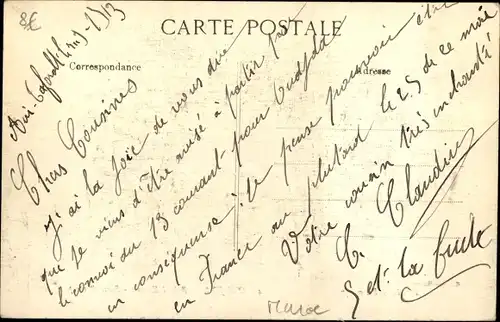 8€
CARTE POSTALE
Correspondance
Adresse
Chers Cousines
J'ai la joie de vous dire
que je viens d'être avisé à partir par
le convoi du 13 courant pour Oudjda
en conséquence je pense pouvoir être
en France au plutard le 25 de ce mois
Votre cousin très
C. Claudius
Maroc